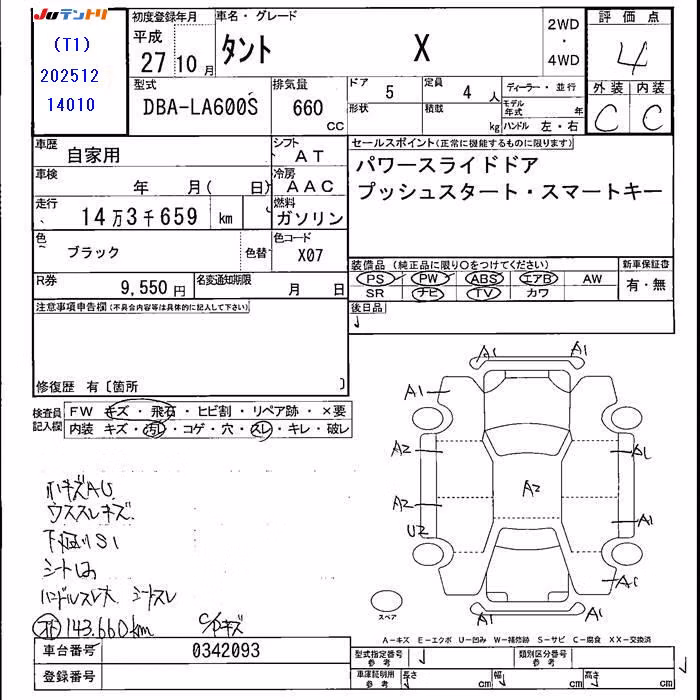 Juテントリ
(T1)
202512
14010
初度登録年月
平成
27 10 月
車名・グレード
タント X
2WD
・
4WD
評価点
4
外装 内装
C C
型式
DBA-LA600S
排気量
660
CC
ドア 5
定員 4 人
形状
積載 kg
ディーラー・並行
モデル年式 年
ハンドル 左・右
車歴 自家用
シフト AT
車検 年 月( 日)
冷房 AAC
走行 14万3千659 km
燃料 ガソリン
色 ブラック 色替
色コード X07
R券 9,550 円
名変通知期限 月 日
セールスポイント(正常に機能するものに限ります)
パワースライドドア
プッシュスタート・スマートキー
装備品(純正品に限り○をつけてください)
PS PW ABS エアB AW
SR ナビ TV カワ
新車保証書
有・無
後日品
注意事項申告欄(不具合内容等は具体的に記入して下さい)
修復歴 有〔箇所 〕
検査員記入欄
FW キズ・飛石・ヒビ割・リペア跡・×要
内装 キズ・汚レ・コゲ・穴・スレ・キレ・破レ
小キズAU
ウススレキズ
S1
シート
ハンドルスレ大 シートスレ
143.660km
キズ
A1 A1
A1
A2 A1
A2 A2 A1
U2
A1
スペア
A-キズ E-エクボ U-凹み W-補修跡 S-サビ C-腐食 XX-交換済
車台番号 0342093
登録番号
型式指定番号 参考
類別区分番号 参考
車庫証明用 参考
長さ cm 幅 cm 高さ cm